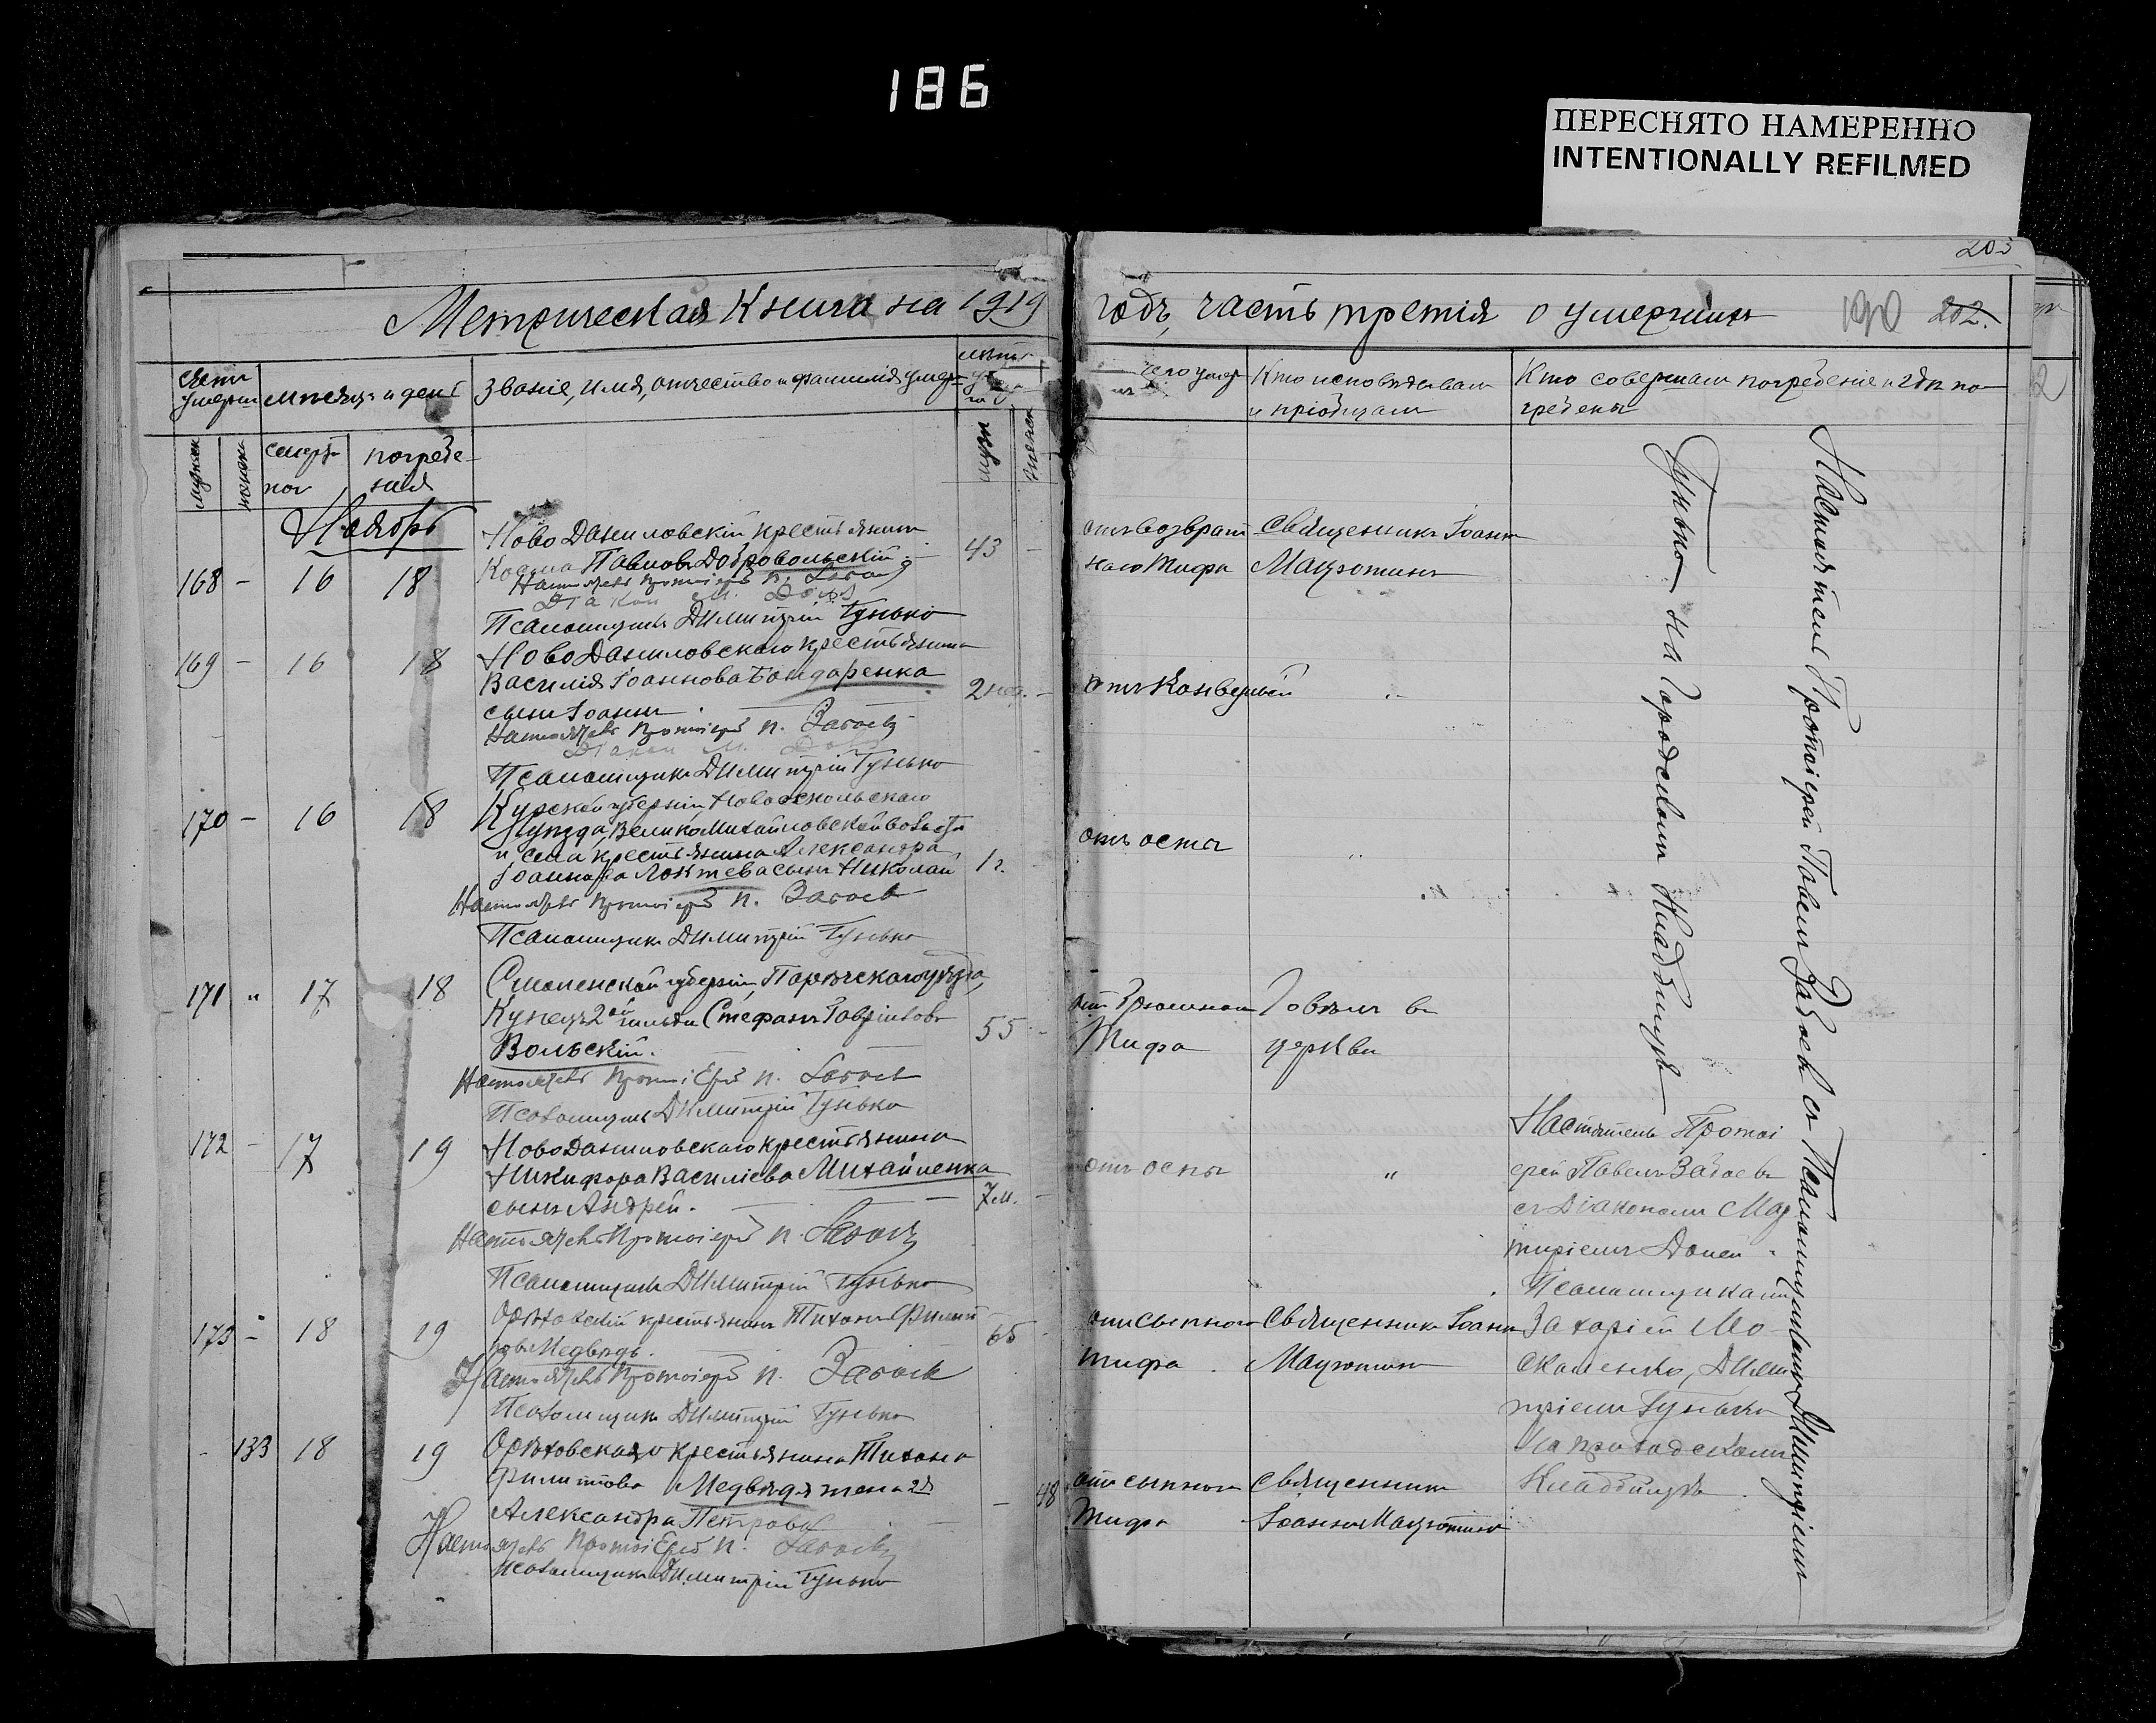 186
ПЕРЕСНЯТО НАМЕРЕННО
INTENTIONALLY REFILMED
203
Метрическая Книга на 1919
годъ, часть третія о умершихъ
190 202.
Счетъ умерш.
Мѣсяцъ и день
Званіе, имя, отчество и фамилія умер-
лѣта
чего умер
Кто исповѣдывалъ
и пріобщалъ
Кто совершалъ погребеніе и гдѣ по-
гребены
мужск
женск
смерт-
ног
погребе-
нія
мужск
женск
Ноябрь
168 - 16 18
Ново Даниловскій крестьянинъ
Косма Павловъ Добровольскій. 43 -
Настоятель Протоіерей П. Забаев
Діакон М. Доне
Псаломщикъ Димитрій Гунько
отъ возврат
наго Тифа
Священникъ Іоаннъ
Мацютинъ
169 - 16 18
Ново Даниловскаго крестьянина
Василія Іоаннова Бондаренка
сынъ Іоаннъ. 2 нед. -
Настоятель Протоіерей П. Забаевъ
Діакон М. Доне
Псаломщикъ Димитрій Гунько
отъ Конвульсій
170 - 16 18
Курской губерніи, Новооскольскаго
уѣзда, Велико Михайловской волости
и села крестьянина Александра
Іоаннова Локтева сынъ Николай 1 г.
Настоятель Протоіерей П. Забаев
Псаломщикъ Димитрій Гунько
отъ оспы
171 " 17 18
Смоленской губерніи, Порѣчскаго уѣзда,
Купецъ 2ой гильдіи Стефанъ Гавріиловъ
Вольскій. 55 -
Настоятель Протоіерей П. Забаев
Псаломщикъ Димитрій Гунько
отъ брюшного
Тифа
Говѣлъ въ
церкви
172 - 17 19
Ново Даниловскаго крестьянина
Никифора Василіева Михайленка
сынъ Андрей. 7 м. -
Настоятель Протоіерей П. Забаевъ
Псаломщикъ Димитрій Гунько
отъ оспы
"
173 - 18 19
Орѣховскій крестьянинъ Тихонъ Филип-
повъ Медвѣдь. 65 -
Настоятель Протоіерей П. Забаев
Псаломщикъ Димитрій Гунько
отъ сыпного
тифа.
Священникъ Іоаннъ
Мацютинъ
- 133 18 19
Орѣховскаго крестьянина Тихона
Филиппова Медвѣдя жена 2я
Александра Петрова - 48
Настоятель Протоіерей П. Забаевъ
Псаломщикъ Димитрій Гунько
отъ сыпного
Тифа
Священникъ
Іоаннъ Мацютинъ
Настоятель Протоіерей Павелъ Забаевъ съ Псаломщикомъ Димитріемъ
Гунько на Городскомъ Кладбищѣ
Настоятель Протоі
ерей Павелъ Забаевъ
съ Діакономъ Мар
тиріемъ Доней.
Псаломщиками
Захаріей Мо-
скаленко, Дими
тріемъ Гунько
На Городскомъ
Кладбищѣ.